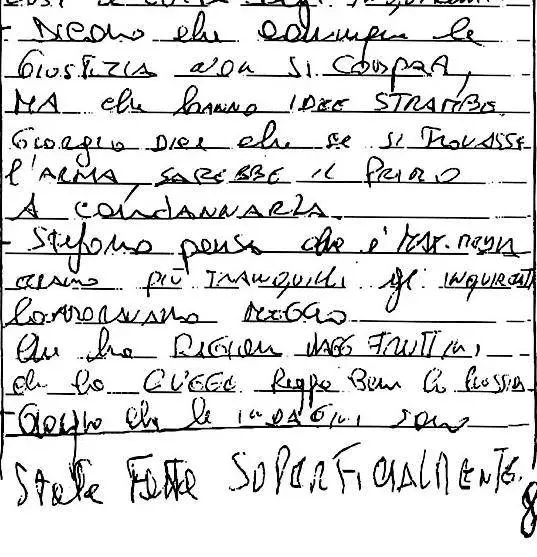 - Dicono che comunque la
GIUSTIZIA NON SI COMPRA,
MA che hanno IDEE STRAMBE.
Giorgio DICE che se SI TROVASSE
l'ARMA, SAREBBE il PRIMO
A CONDANNARLA.
- Stefano pensa che
erano più TRANQUILLI gl' INQUIRENTI
lavoravano MEGLIO
che ha
che ha Reggo Bene la
- Giorgio che le INDAGINI sono
State Fatte SUPERFICIALMENTE.
8